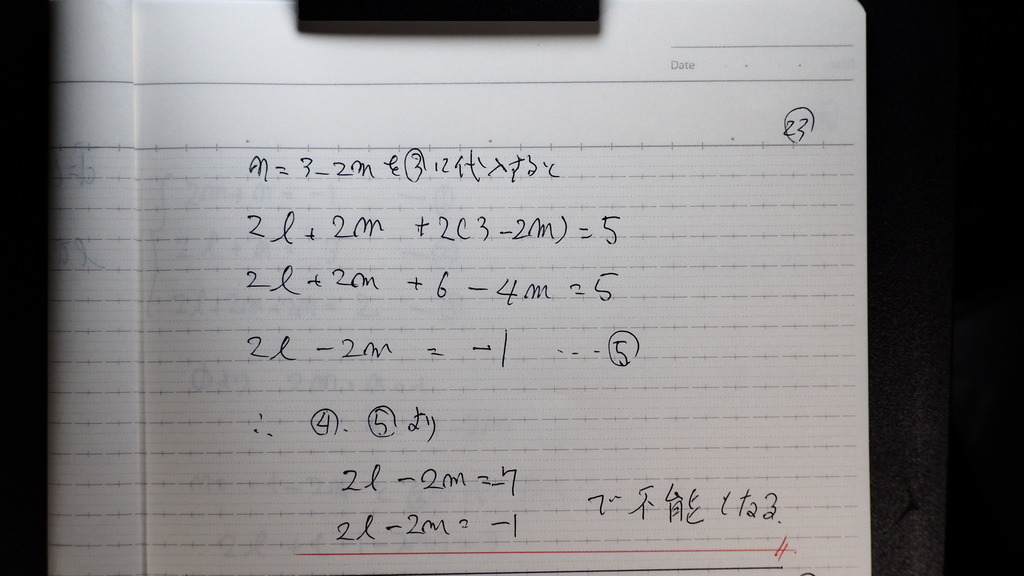 Date
㉓
n = 3 - 2m を③に代入すると
2l + 2m + 2(3 - 2m) = 5
2l + 2m + 6 - 4m = 5
2l - 2m = -1 ... ⑤
∴ ④. ⑤より
2l - 2m = -7
2l - 2m = -1 で不能となる.